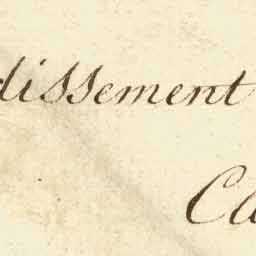 dissement
Ca